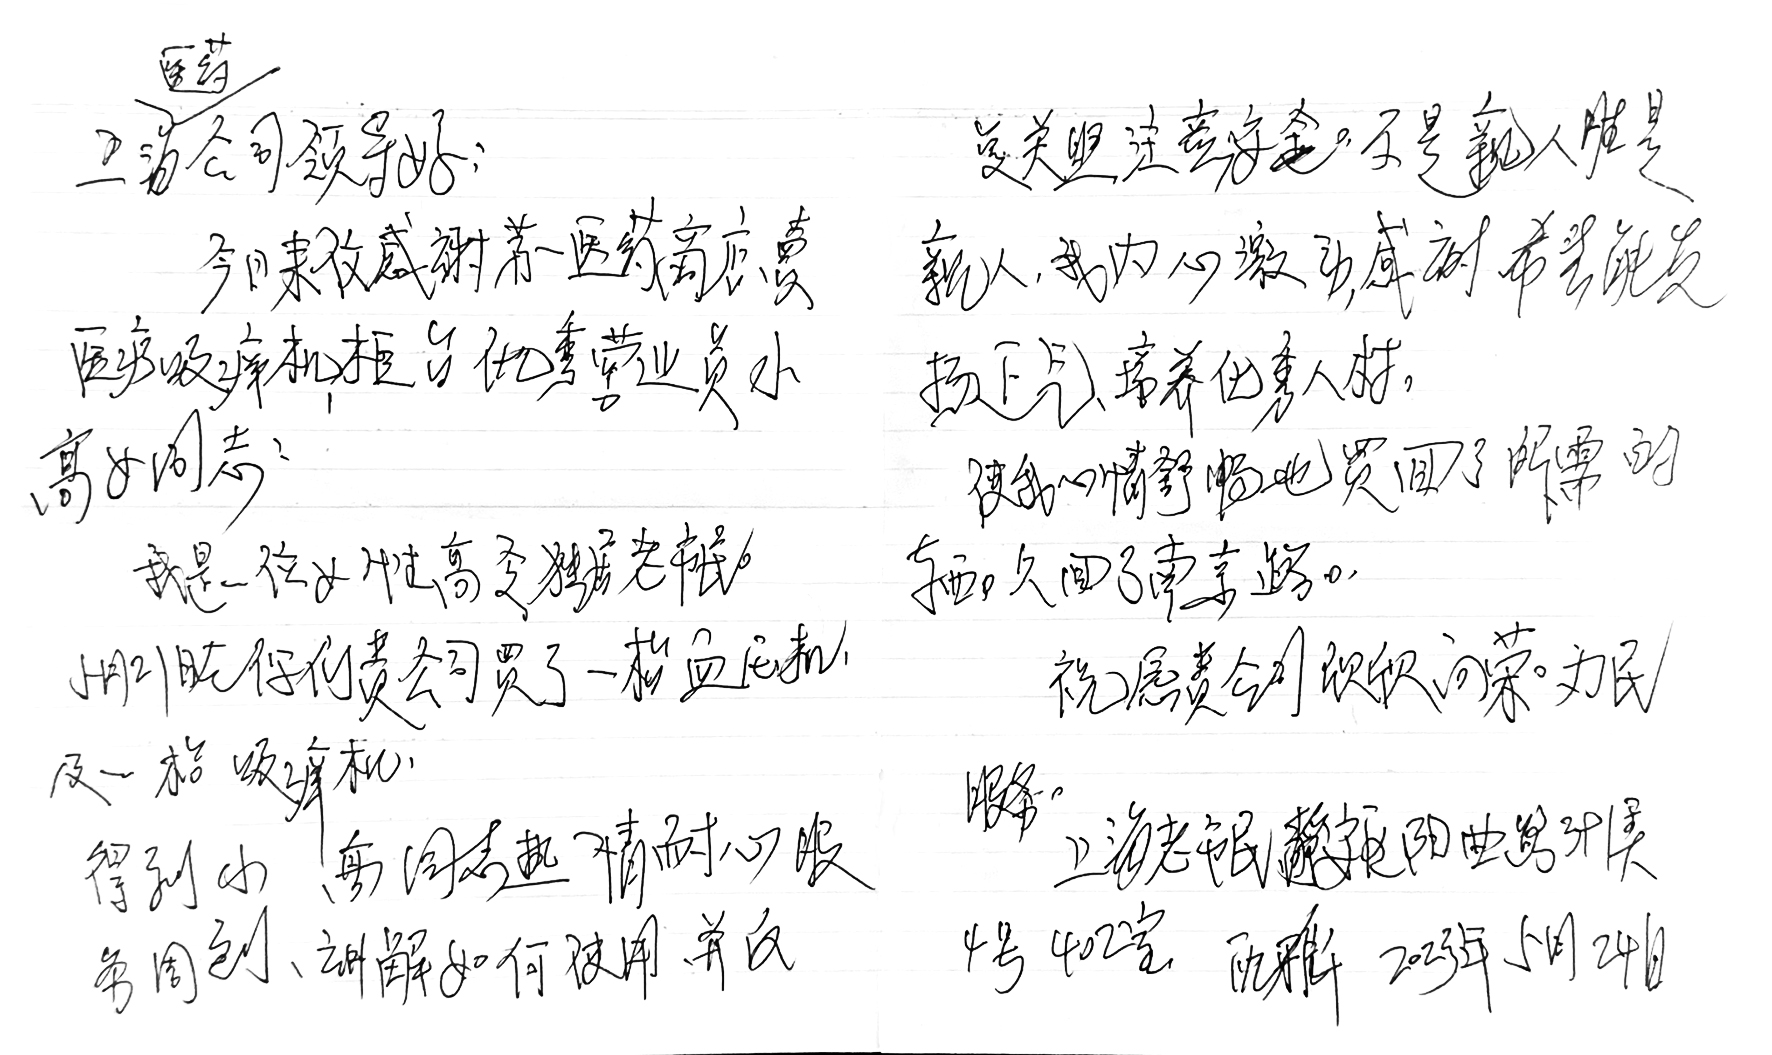 医药
上海公司领导好：
今日来致感谢第一医药商店卖
医疗吸痰机柜台优秀营业员小
高女同志：
我是一位女性高令独居老市民。
5月21日在你们贵公司买了一枱血压机，
及一枱吸痰机.
得到小高同志热情耐心服
务周到、讲解如何使用、并反
复关照注意安全。不是親人胜是
親人，我内心激动,感谢 希望能发
扬正气、培养优秀人材，
使我心情舒畅地买回了所需的
东西。又回了南京路。
祝愿贵公司欣欣向荣。为民
服务。
上海老市民静安区阳曲路
4号402室 2023年5月24日